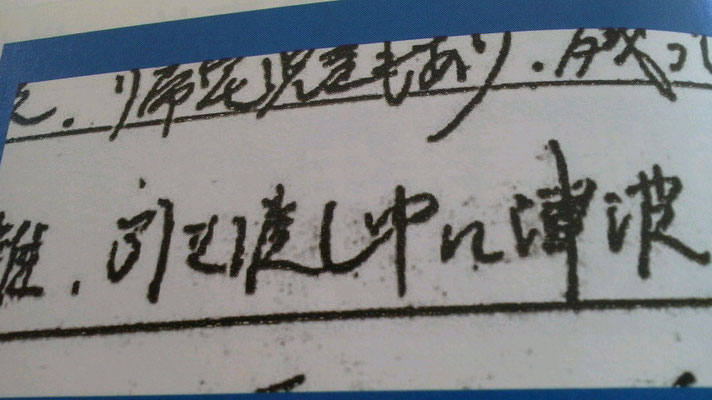 帰宅児童もあり.残っ
引き渡し中に津波